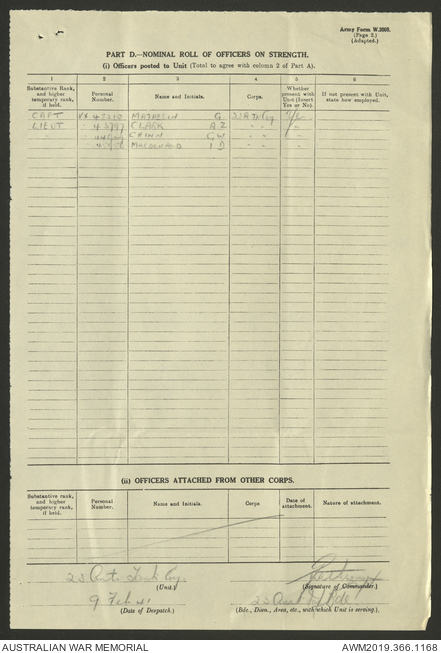 Army Form W.3008.
(Page 2.)
(Adapted.)
PART D.—NOMINAL ROLL OF OFFICERS ON STRENGTH.
(i) Officers posted to Unit (Total to agree with column 2 of Part A).
1 2 3 4 5 6
Substantive Rank, and higher temporary rank, if held. Personal Number. Name and Initials. Corps. Whether present with Unit (Insert Yes or No). If not present with Unit, state how employed.
CAPT VX G.
LIEUT CLARK A Z " "
" G W " "
" MACDONALD I D " "
(ii) OFFICERS ATTACHED FROM OTHER CORPS.
Substantive rank, and higher temporary rank, if held. Personal Number. Name and Initials. Corps Date of attachment. Nature of attachment.
23 Tank Coy.
(Unit.) (Signature of Commander.)
9 Feb 41 23 Bde
(Date of Despatch.) (Bde., Divn., Area, etc., with which Unit is serving.)
AUSTRALIAN WAR MEMORIAL AWM2019.366.1168